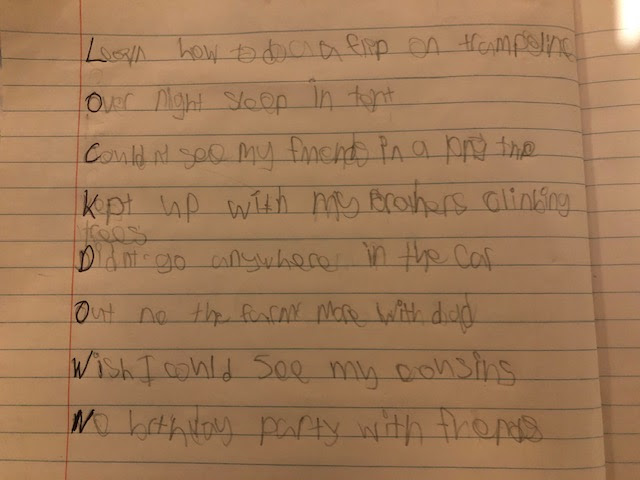 Learn how to do a a flip on trampoline
Over night sleep in tent
Couldnt see my friends in a
Kept up with my Brothers climbing
trees
Didnt go anywhere in the car
Out no the farm More with dad
Wish I could see my cousins
No birthday party with friends